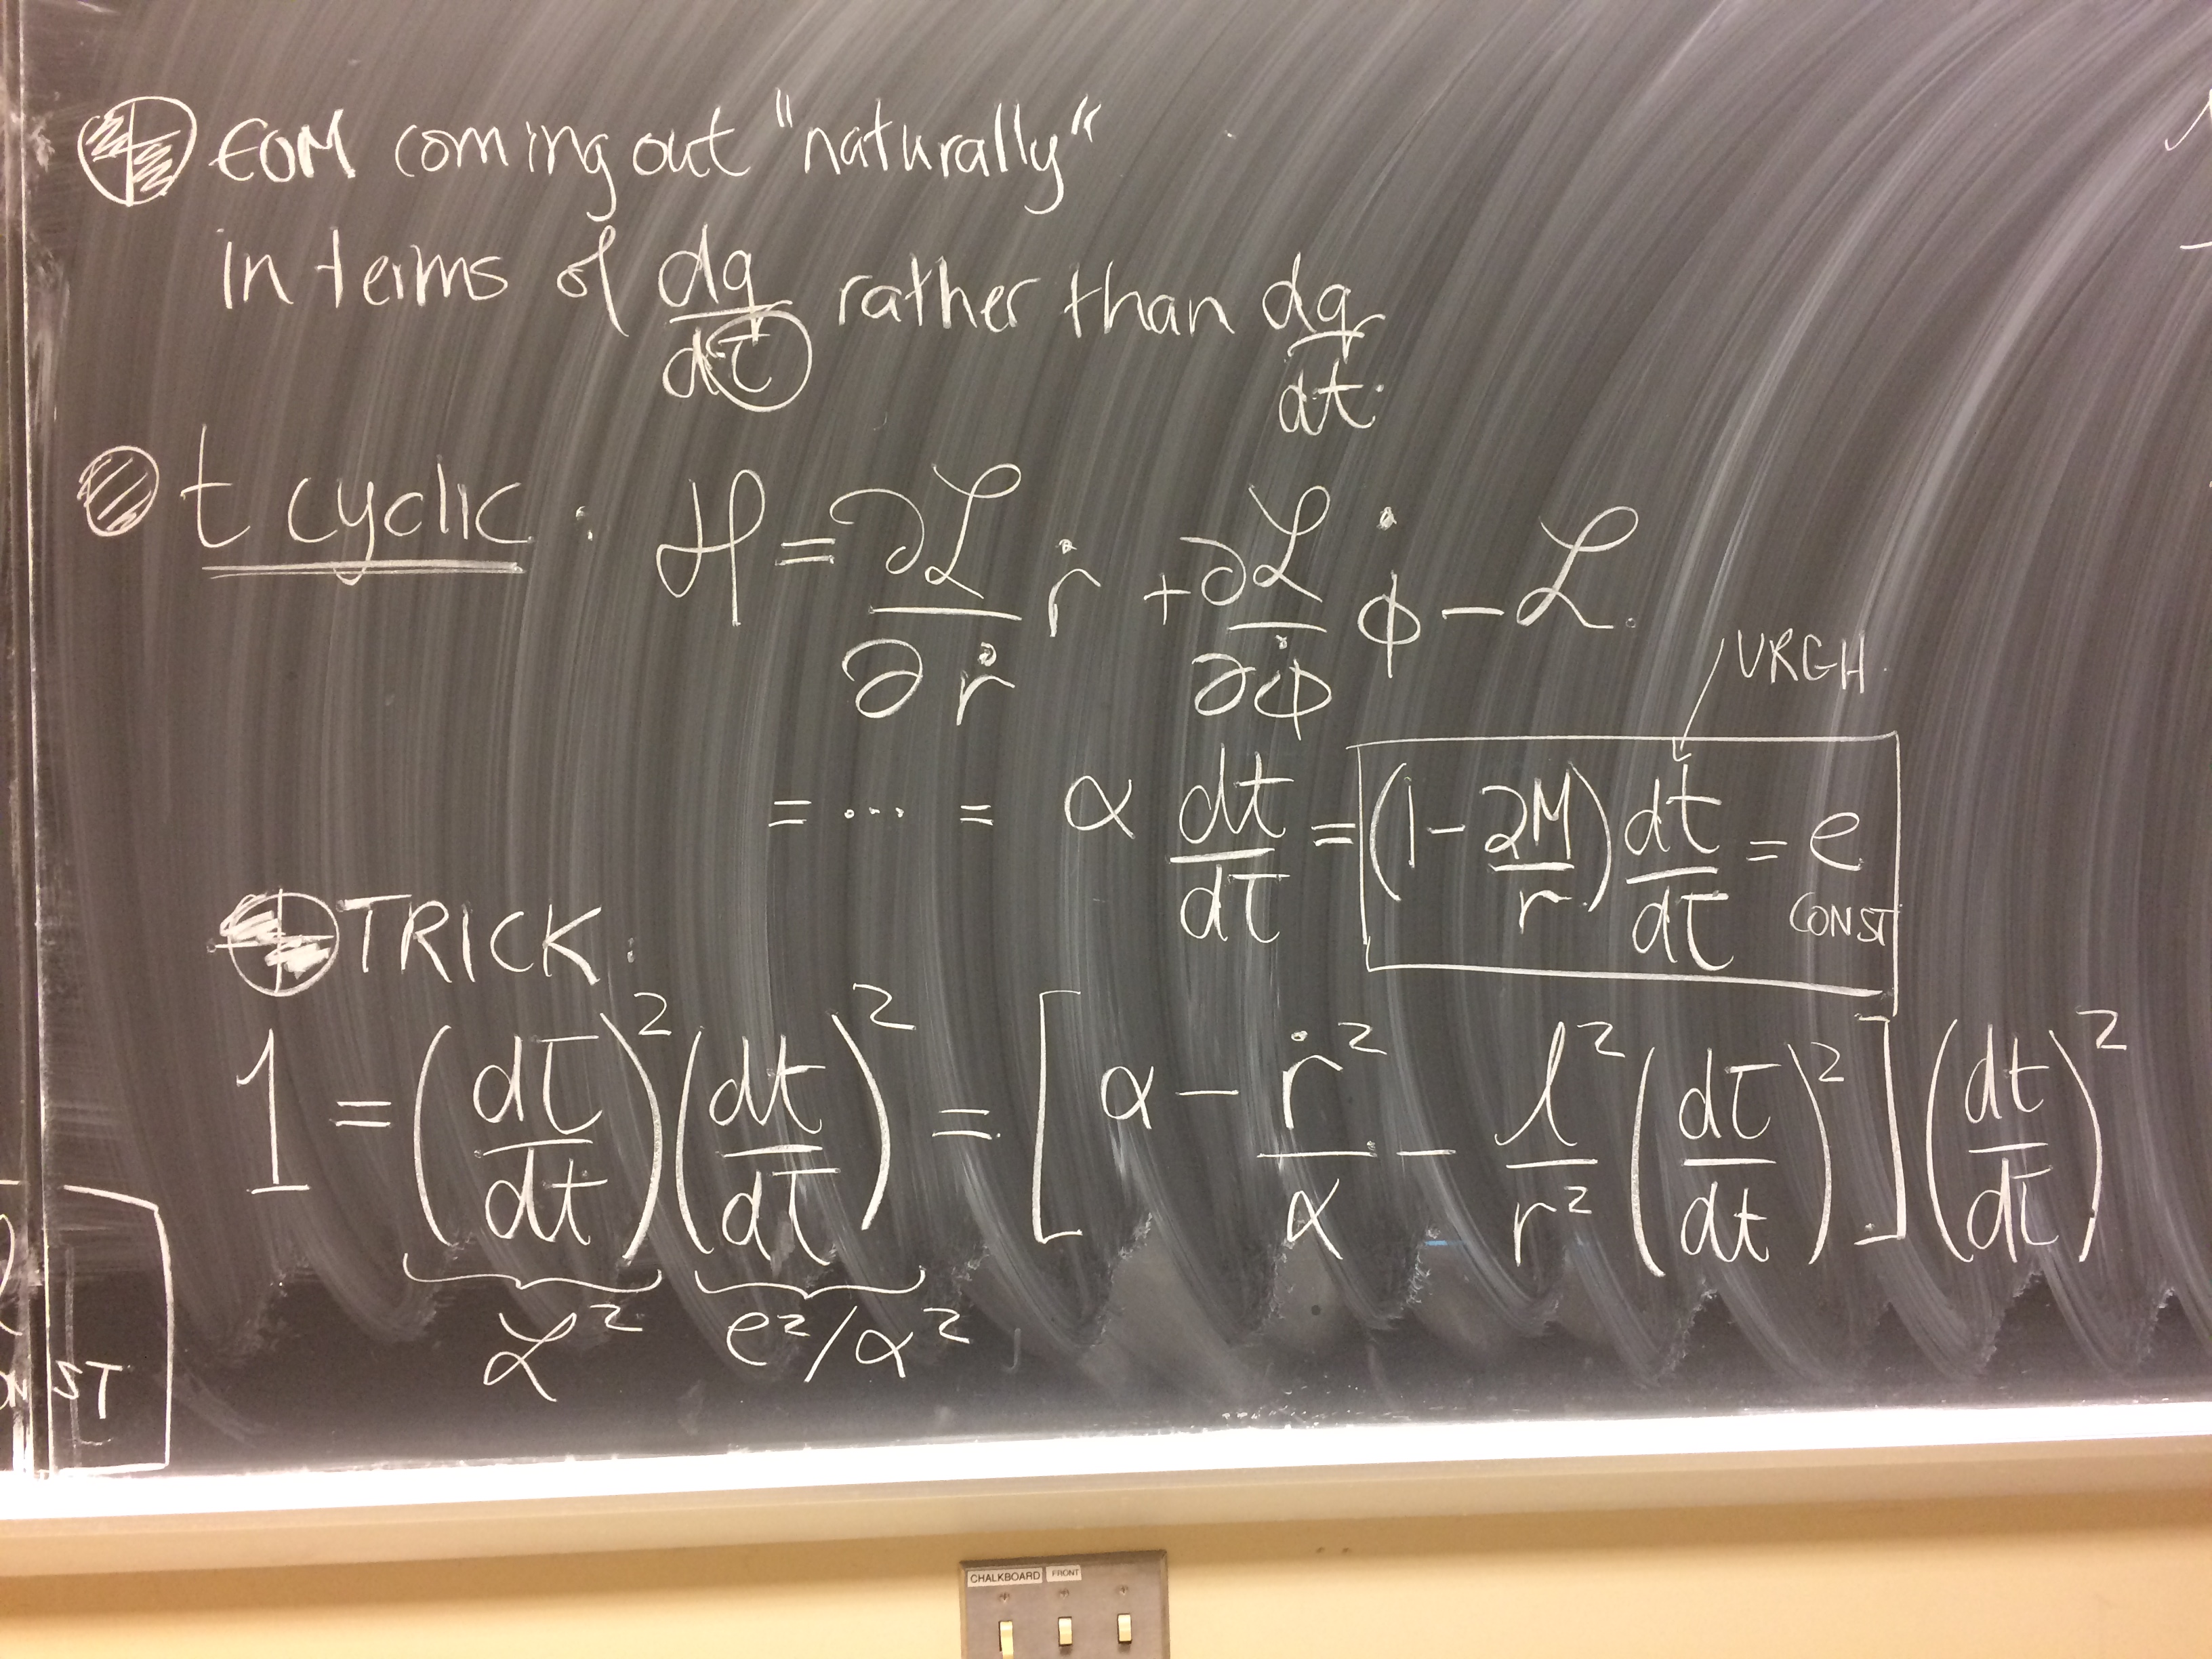 EOM coming out "naturally"
in terms of dq/dτ rather than dq/dt.
t cyclic : ℋ = ∂ℒ/∂ṙ ṙ + ∂ℒ/∂φ̇ φ̇ − ℒ.
URGH.
= ... = α dt/dτ = (1 − 2M/r) dt/dτ = e
CONST
TRICK:
1 = (dτ/dt)² (dt/dτ)² = [α − ṙ²/α − l²/r² (dτ/dt)²] (dt/dτ)²
ℒ² e²/α²
ONST
CHALKBOARD FRONT